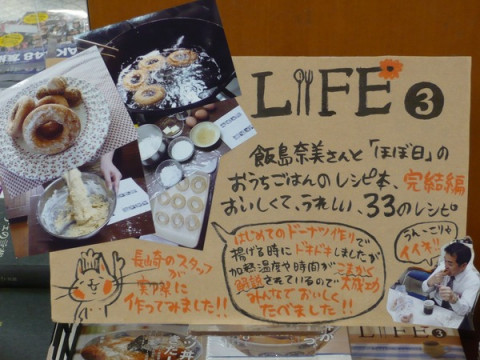 LIFE ③
飯島奈美さんと「ほぼ日」の
おうちごはんのレシピ本、完結編
おいしくて、うれしい、33のレシピ
はじめてのドーナツ作りで
揚げる時にドキドキしましたが
加熱温度や時間がこまかく
解説されているので大成功
みんなでおいしく
たべました!!
う〜ん、こりゃ
イイネ!!
長崎のスタッフ
が
実際に
作ってみました!!
LIFE ③